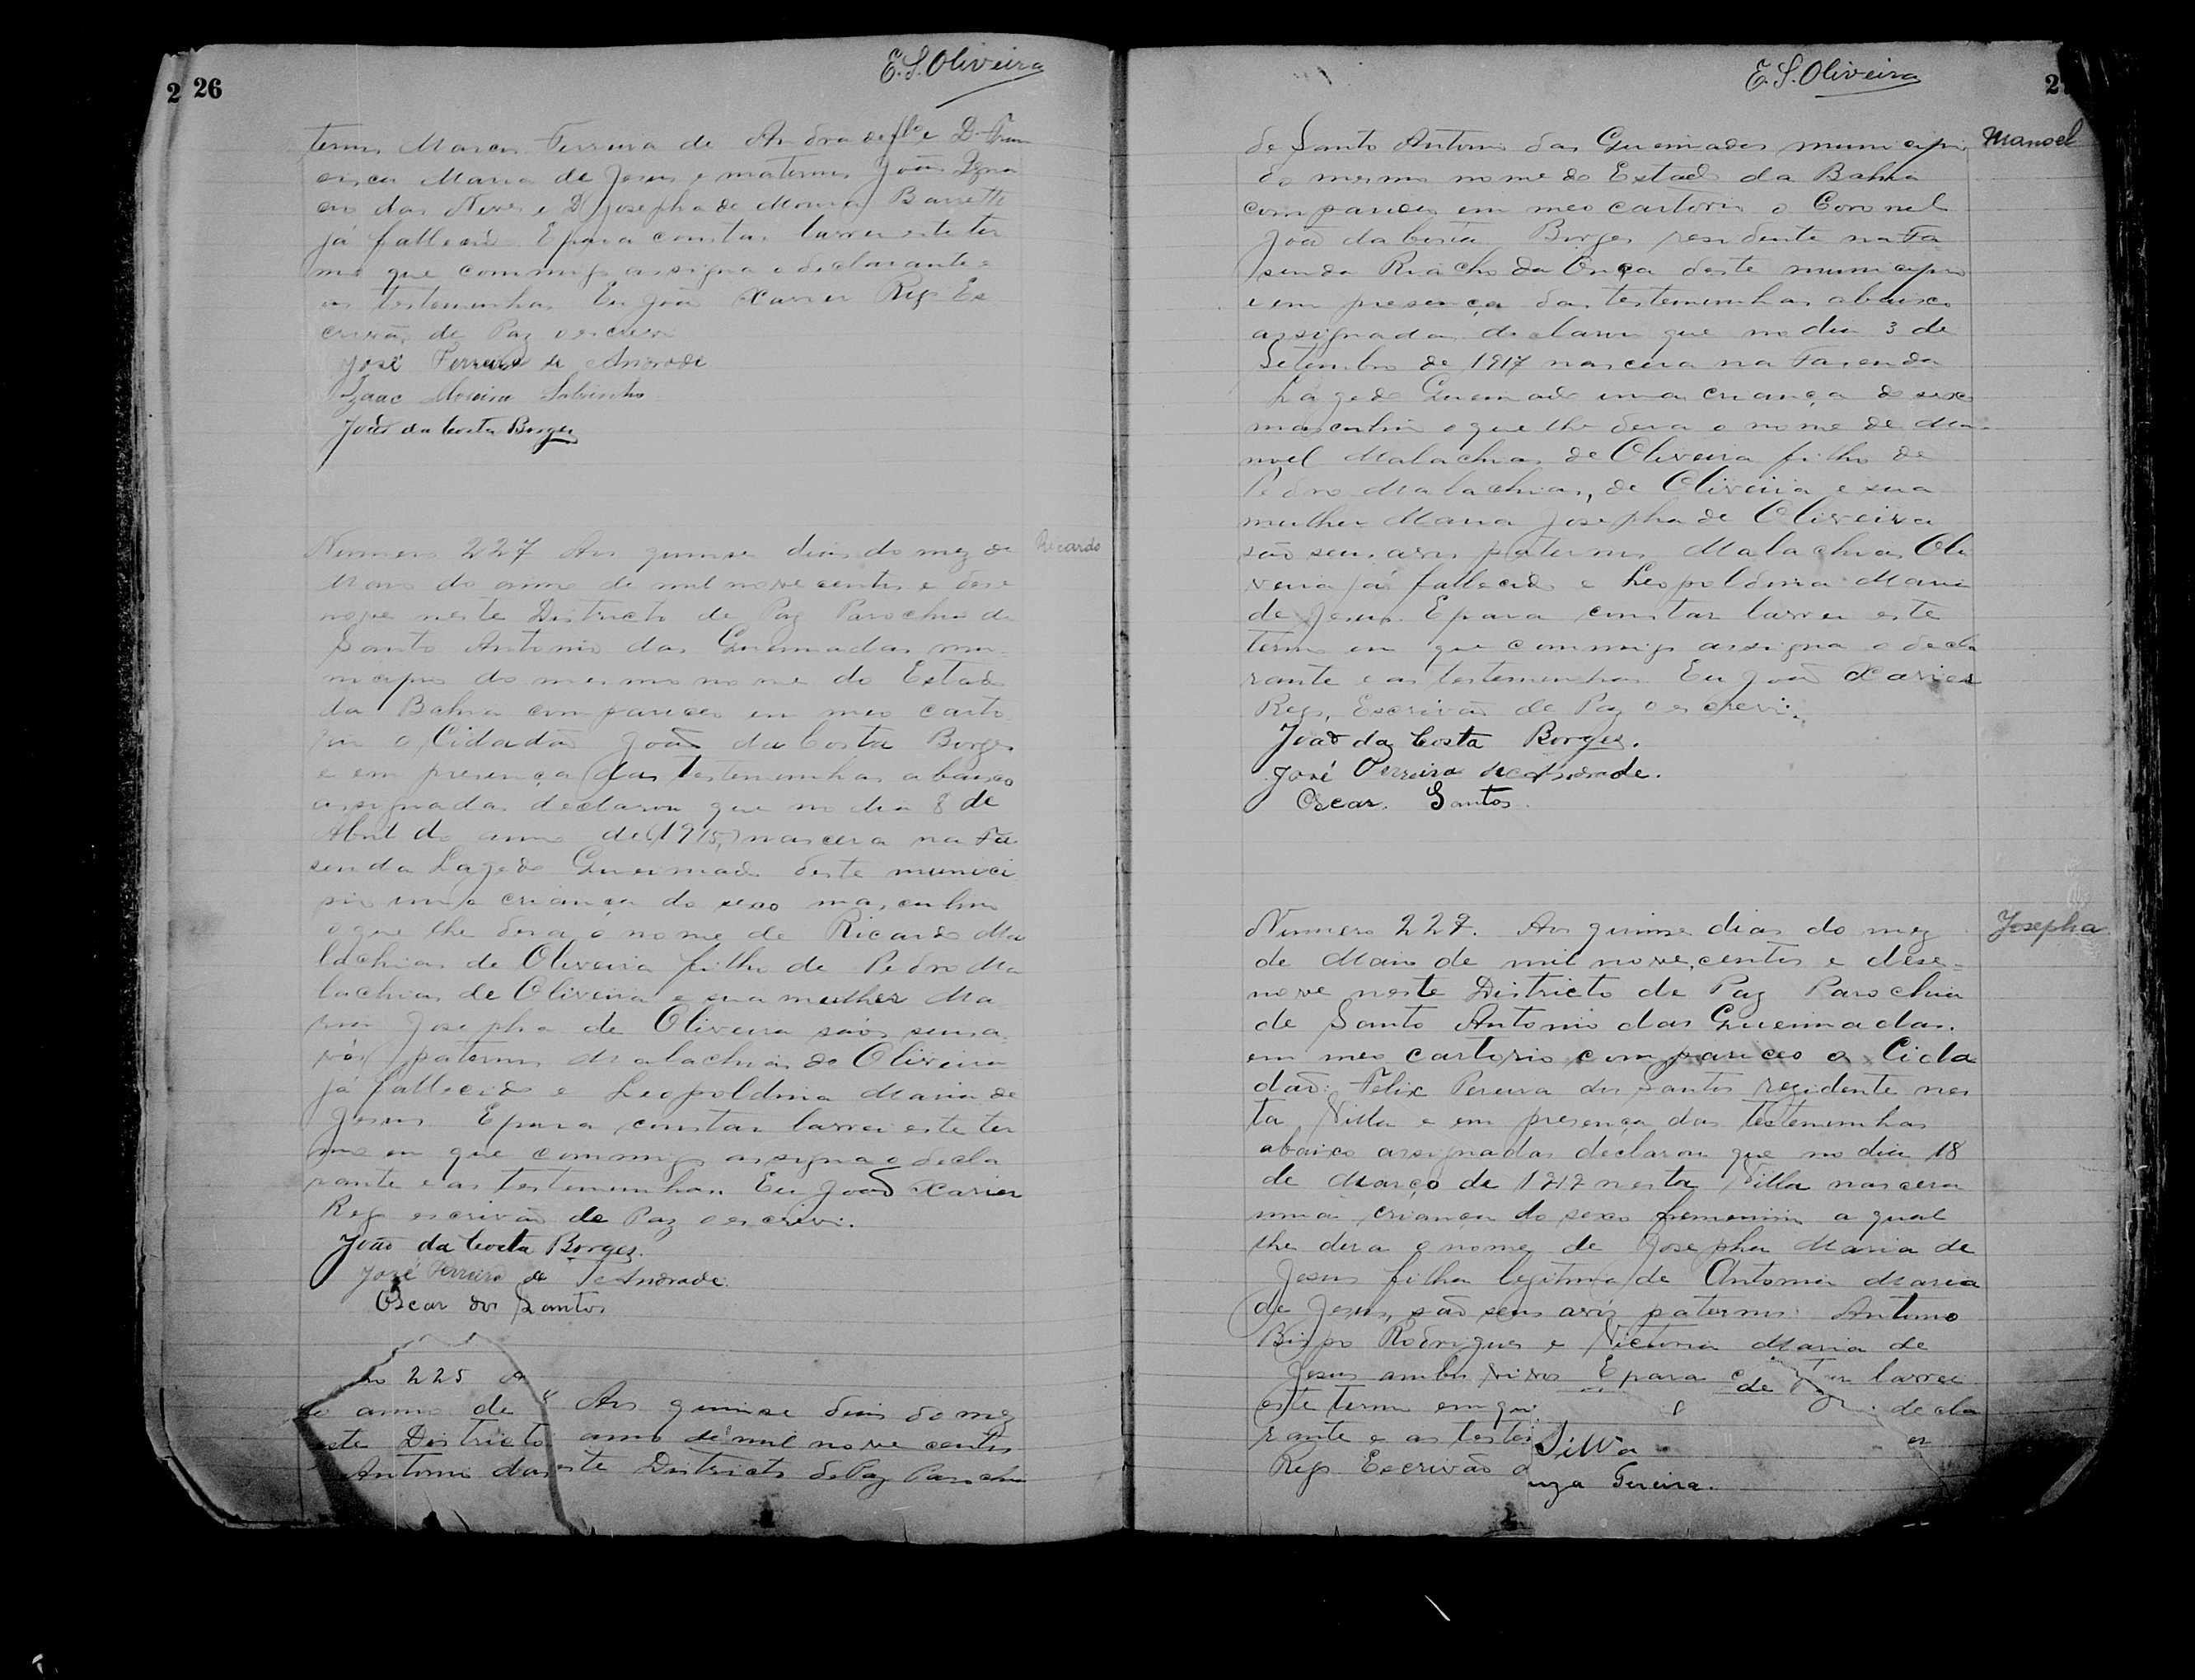 2 26
E. S. Oliveira
ternos Marcos Ferreira de Andrade flo e D. Fran
cisca Maria de Jesus e maternos João Igna
cio das Neves e D. Josepha de Moura Barretto
já fallecido E para constar lavrei este ter
mo que commigo assigna o declarante e
as testemunhas Eu João Xavier Rego Es
crivão de Paz o escrevi
José Ferreira de Andrade
Izaac Moreira Sobrinho
João da Costa Borges
Numero 227 Aos quinse dias do mez de
Ricardo
Maio do anno de mil nove centos e dese
nove neste Districto de Paz Parochia de
Santo Antonio das Queimadas mu
nicipio do mesmo nome do Estado
da Bahia compareceo em meo carto
rio o Cidadão João da Costa Borges
e em presença das testemunhas abaixo
assignadas declarou que no dia 8 de
Abril do anno de 1915, nascera na Fa
senda Lagedo Queimado deste munici
pio uma criança do sexo masculino
o que lhe dera o nome de Ricardo Ma
lachias de Oliveira filho de Pedro Ma
lachias de Oliveira e sua mulher Ma
ria Josepha de Oliveira são seus a
vós paternos Malachias de Oliveira
já fallecido e Leopoldina Maria de
Jesus E para constar lavrei este ter
mo em que commigo assigna o decla
rante e as testemunhas. Eu João Xavier
Rego escrivão de Paz o escrevi.
João da Costa Borges.
José Ferreira de Andrade.
Oscar dos Santos
o 225 A
o anno de Aos quinse dias do mez
este Districto anno de mil nove centos
Antonio das este Districto de Paz Parochia
E. S. Oliveira
2
de Santo Antonio das Queimadas municipio
Manoel
do mesmo nome do Estado da Bahia
compareceo em meo cartorio o Coronel
João da Costa Borges residente na Fa
senda Riacho da Onça deste municipio
e em presença das testemunhas abaixo
assignadas declarou que no dia 3 de
Setembro de 1917 nascera na Fasenda
Lagedo Queimado uma criança do sexo
masculino o que lhe dera o nome de Ma-
noel Malachias de Oliveira filho de
Pedro Malachias, de Oliveira e sua
mulher Maria Josepha de Oliveira
são seus avós paternos Malachias Oli
veira já fallecido e Leopoldina Maria
de Jesus. E para constar lavrei este
termo em que commigo assigna o decla
rante e as testemunhas Eu João Xavier
Rego, Escrivão de Paz o escrevi.
João da Costa Borges.
José Ferreira de Andrade.
Oscar Santos.
Numero 227. Aos quinse dias do mez
Josepha
de Maio de mil nove centos e dese-
nove neste Districto de Paz Parochia
de Santo Antonio das Queimadas.
em meo cartorio compareceo o Cida
dão: Felix Pereira dos Santos rezidente nes
ta Villa e em presença das testemunhas
abaixo assignadas declarou que no dia 18
de Março de 1912 nesta Villa nascera
uma criança do sexo femenino a qual
lhe dera o nome de Josepha Maria de
Jesus filha legitima de Antonia Maria
de Jesus, são seus avós paternos: Antonio
Bispo Rodrigues e Victoria Maria de
Jesus ambos vivos E para lavrei
de
este termo em que decla
rante e as teste Silva
Rego Escrivão
Pereira.